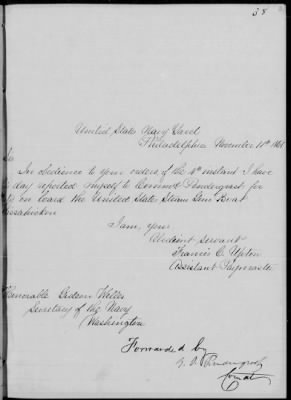 38
United States Navy Yard
Philadelphia November 11th 1861
Sir
In obedience to your orders, of the 4th instant I have
to day reported myself to Commot Pendergrast for
on board the United States Steam Gun Boat
I am, your
Obedient Servant
Francis C Upton
Assistant Paymaster
Honorable Gideon Welles
Secretary of the Navy
Washington
Forwarded by
G. J. Pendergrast
Comdt